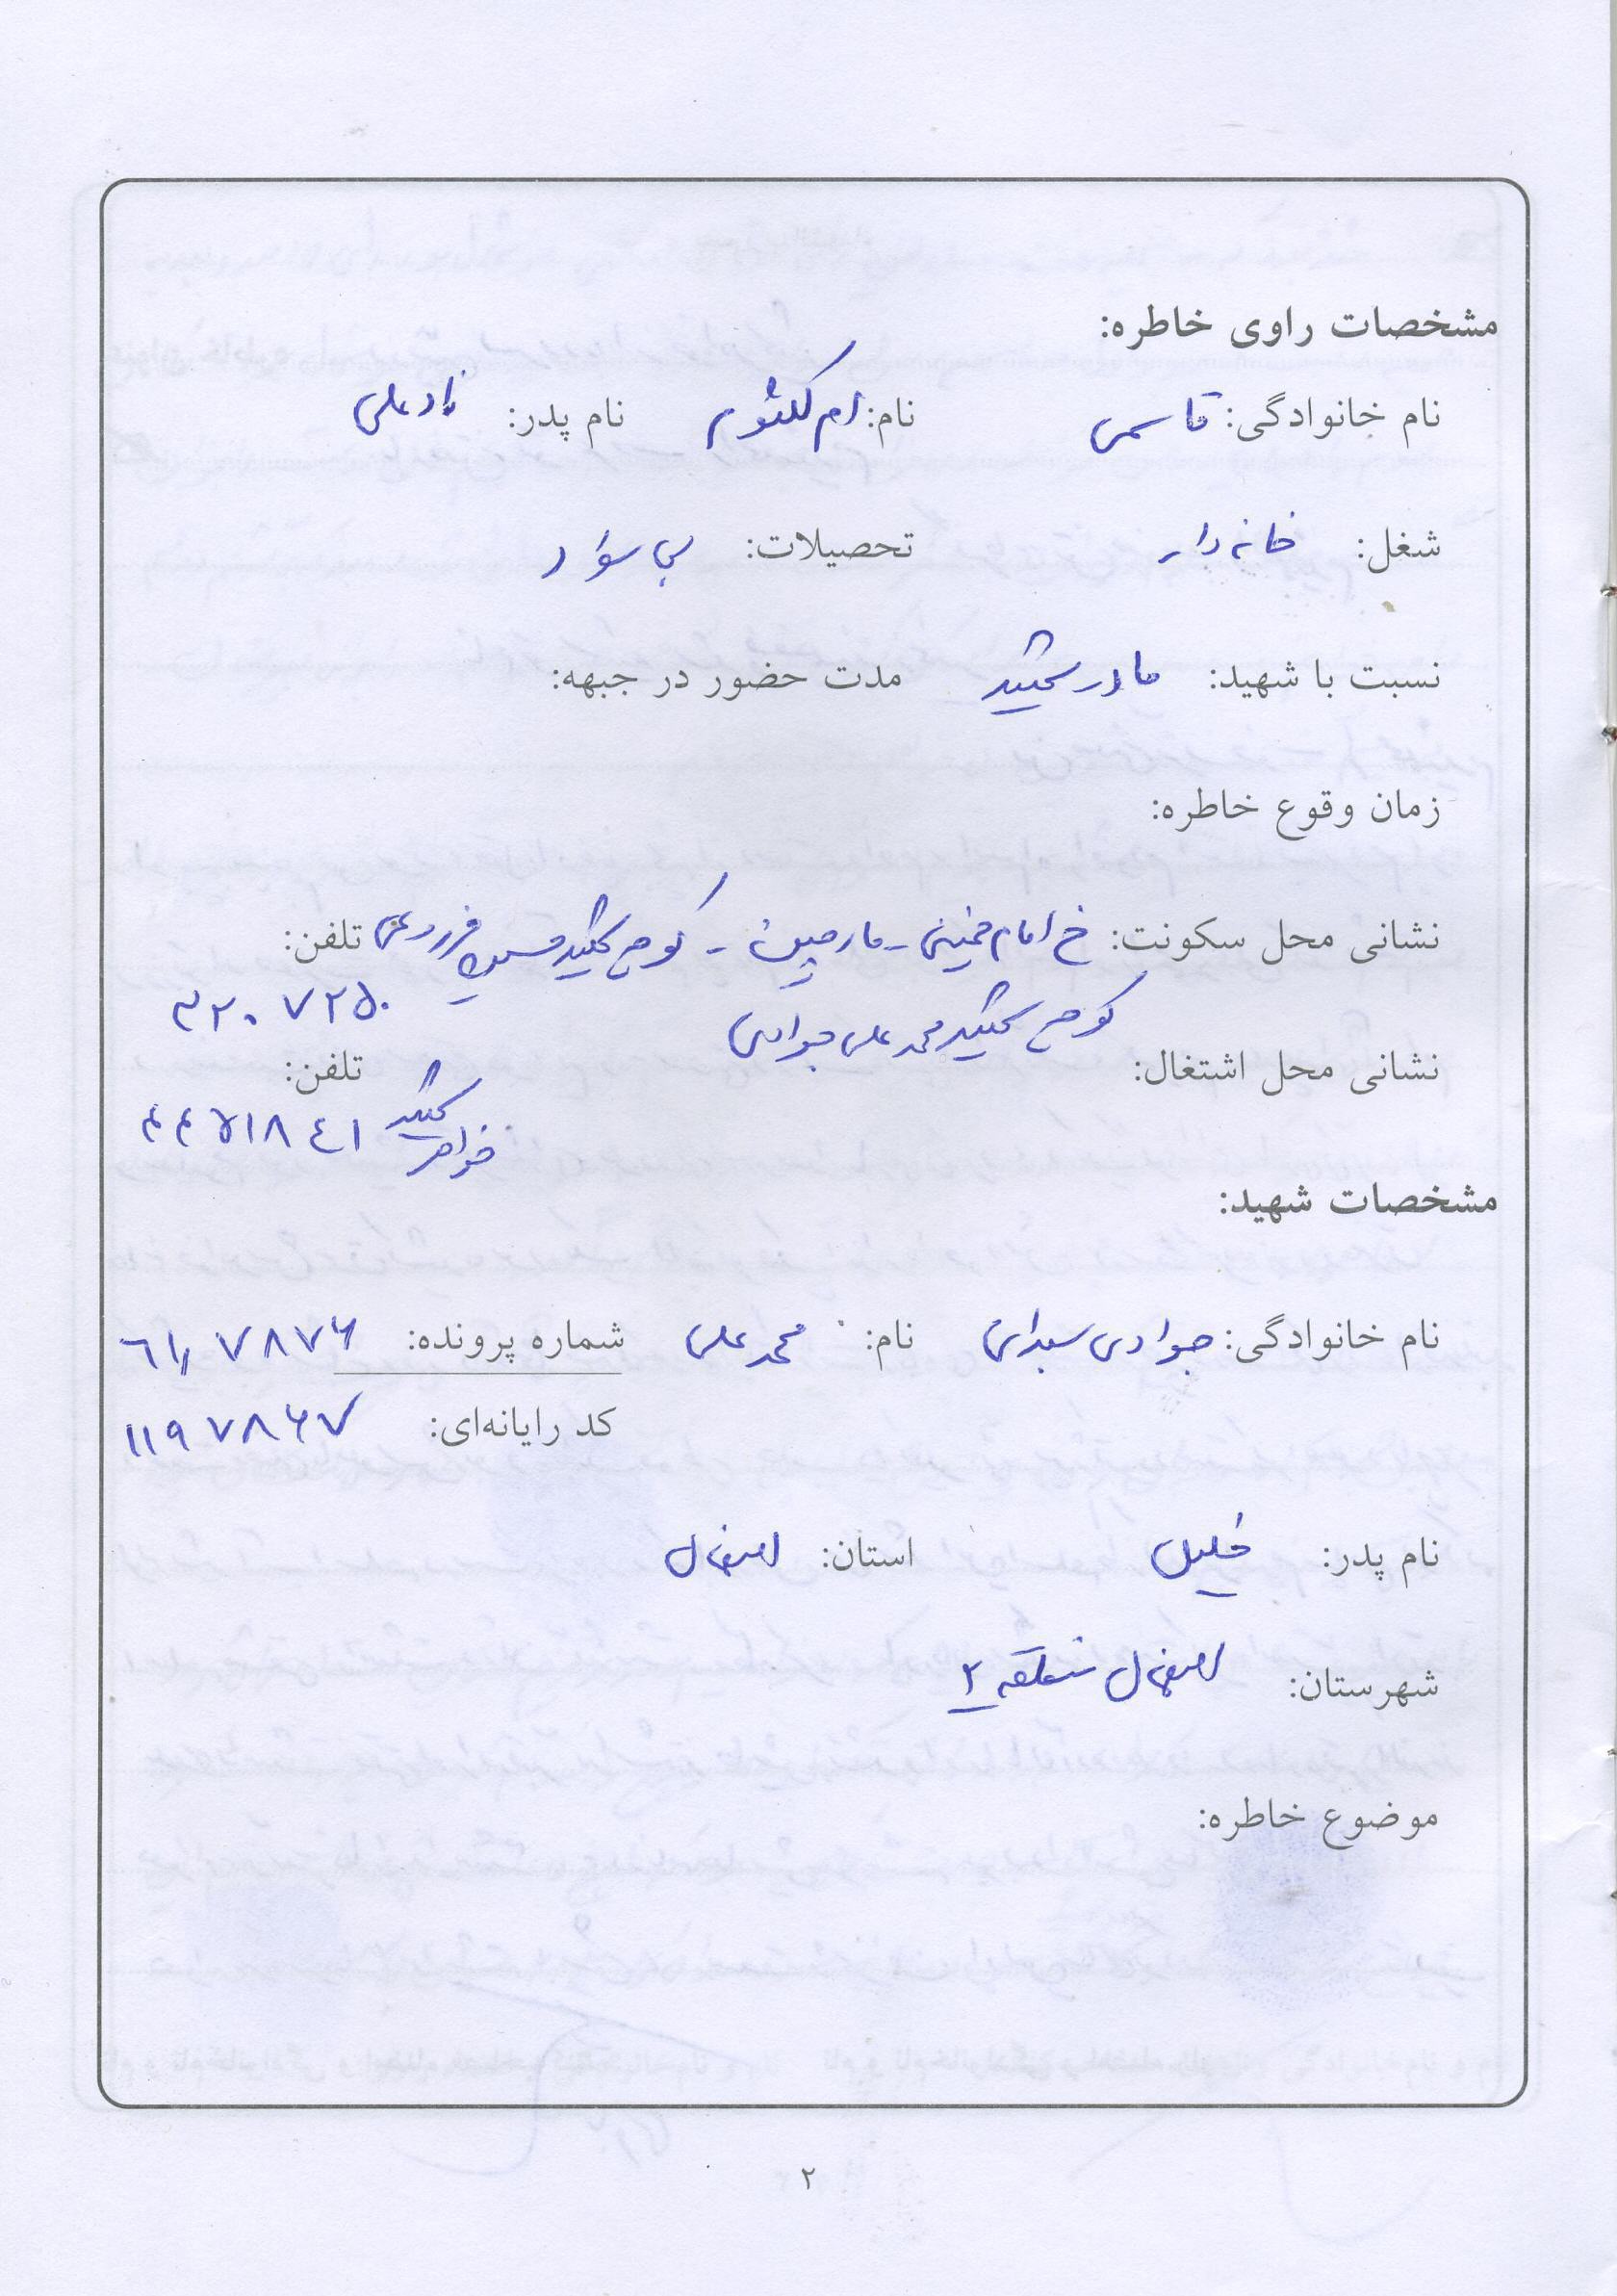 مشخصات راوی خاطره:
نام خانوادگی: قاسمی نام: ام کلثوم نام پدر: نادعلی
شغل: خانه دار تحصیلات: بی سواد
نسبت با شهید: مادر شهید مدت حضور در جبهه:
زمان وقوع خاطره:
نشانی محل سکونت: خ امام خمینی - مارچین - کوچه شهید حسین تلفن:
کوچه شهید محمد علی جوادی ۳۲۰۷۲۵۰
نشانی محل اشتغال: تلفن:
خواهر شهید ۴۴۵۱۸۴۱
مشخصات شهید:
نام خانوادگی: جوادی نام: محمد علی شماره پرونده: ۷۸۷۶
کد رایانه‌ای: ۱۱۹۷۸۶۷
نام پدر: خلیل استان: اصفهان
شهرستان: اصفهان منطقه ۲
موضوع خاطره:
۲